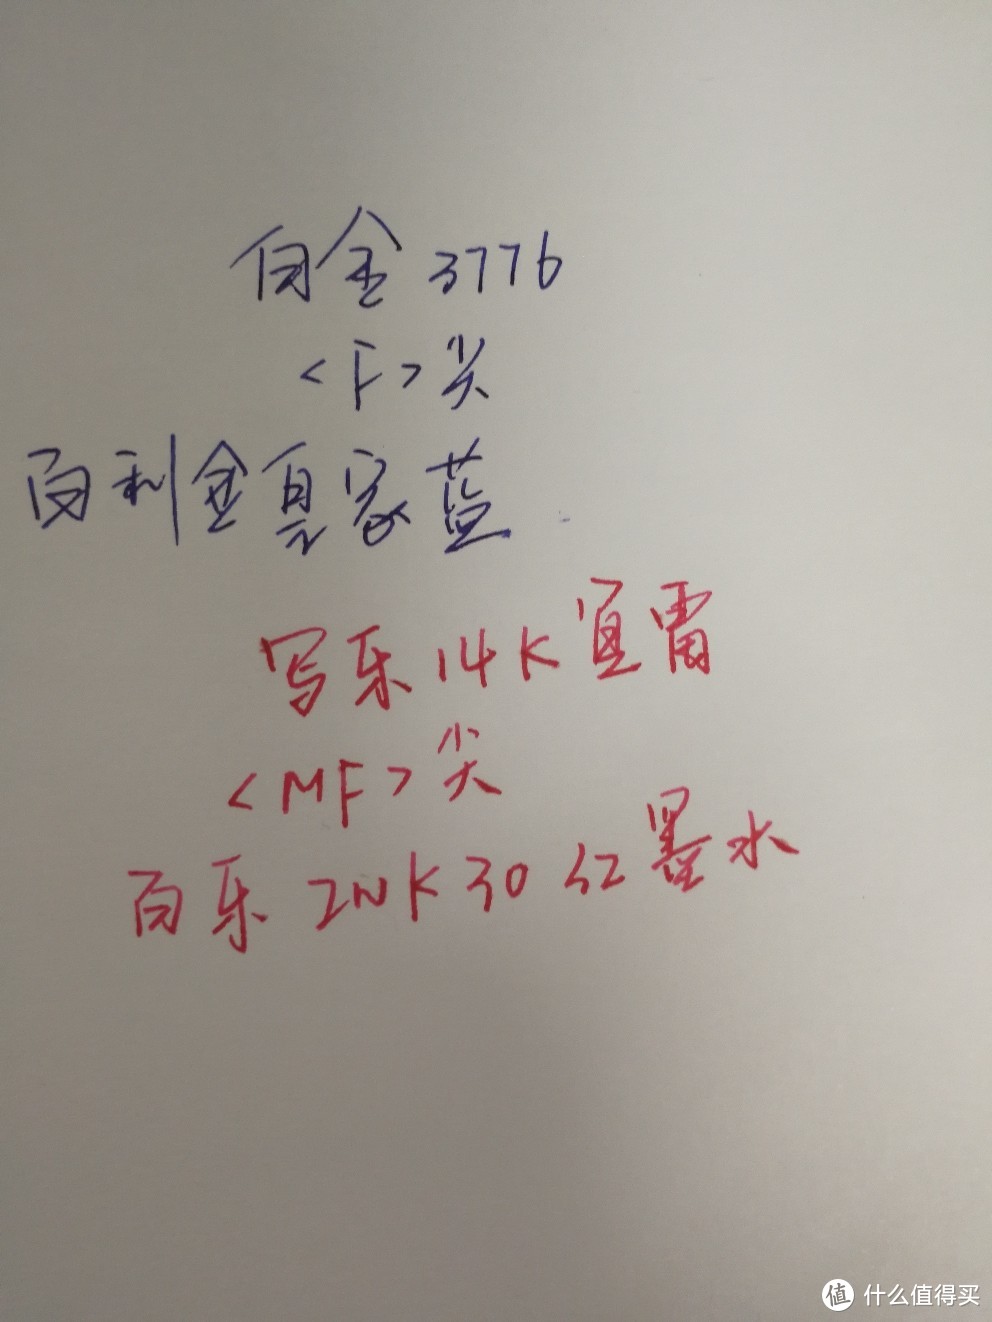 白金3776
<F>尖
百利金皇家蓝
写乐14K宣雷
<MF>尖
百乐INK30红墨水
值 什么值得买